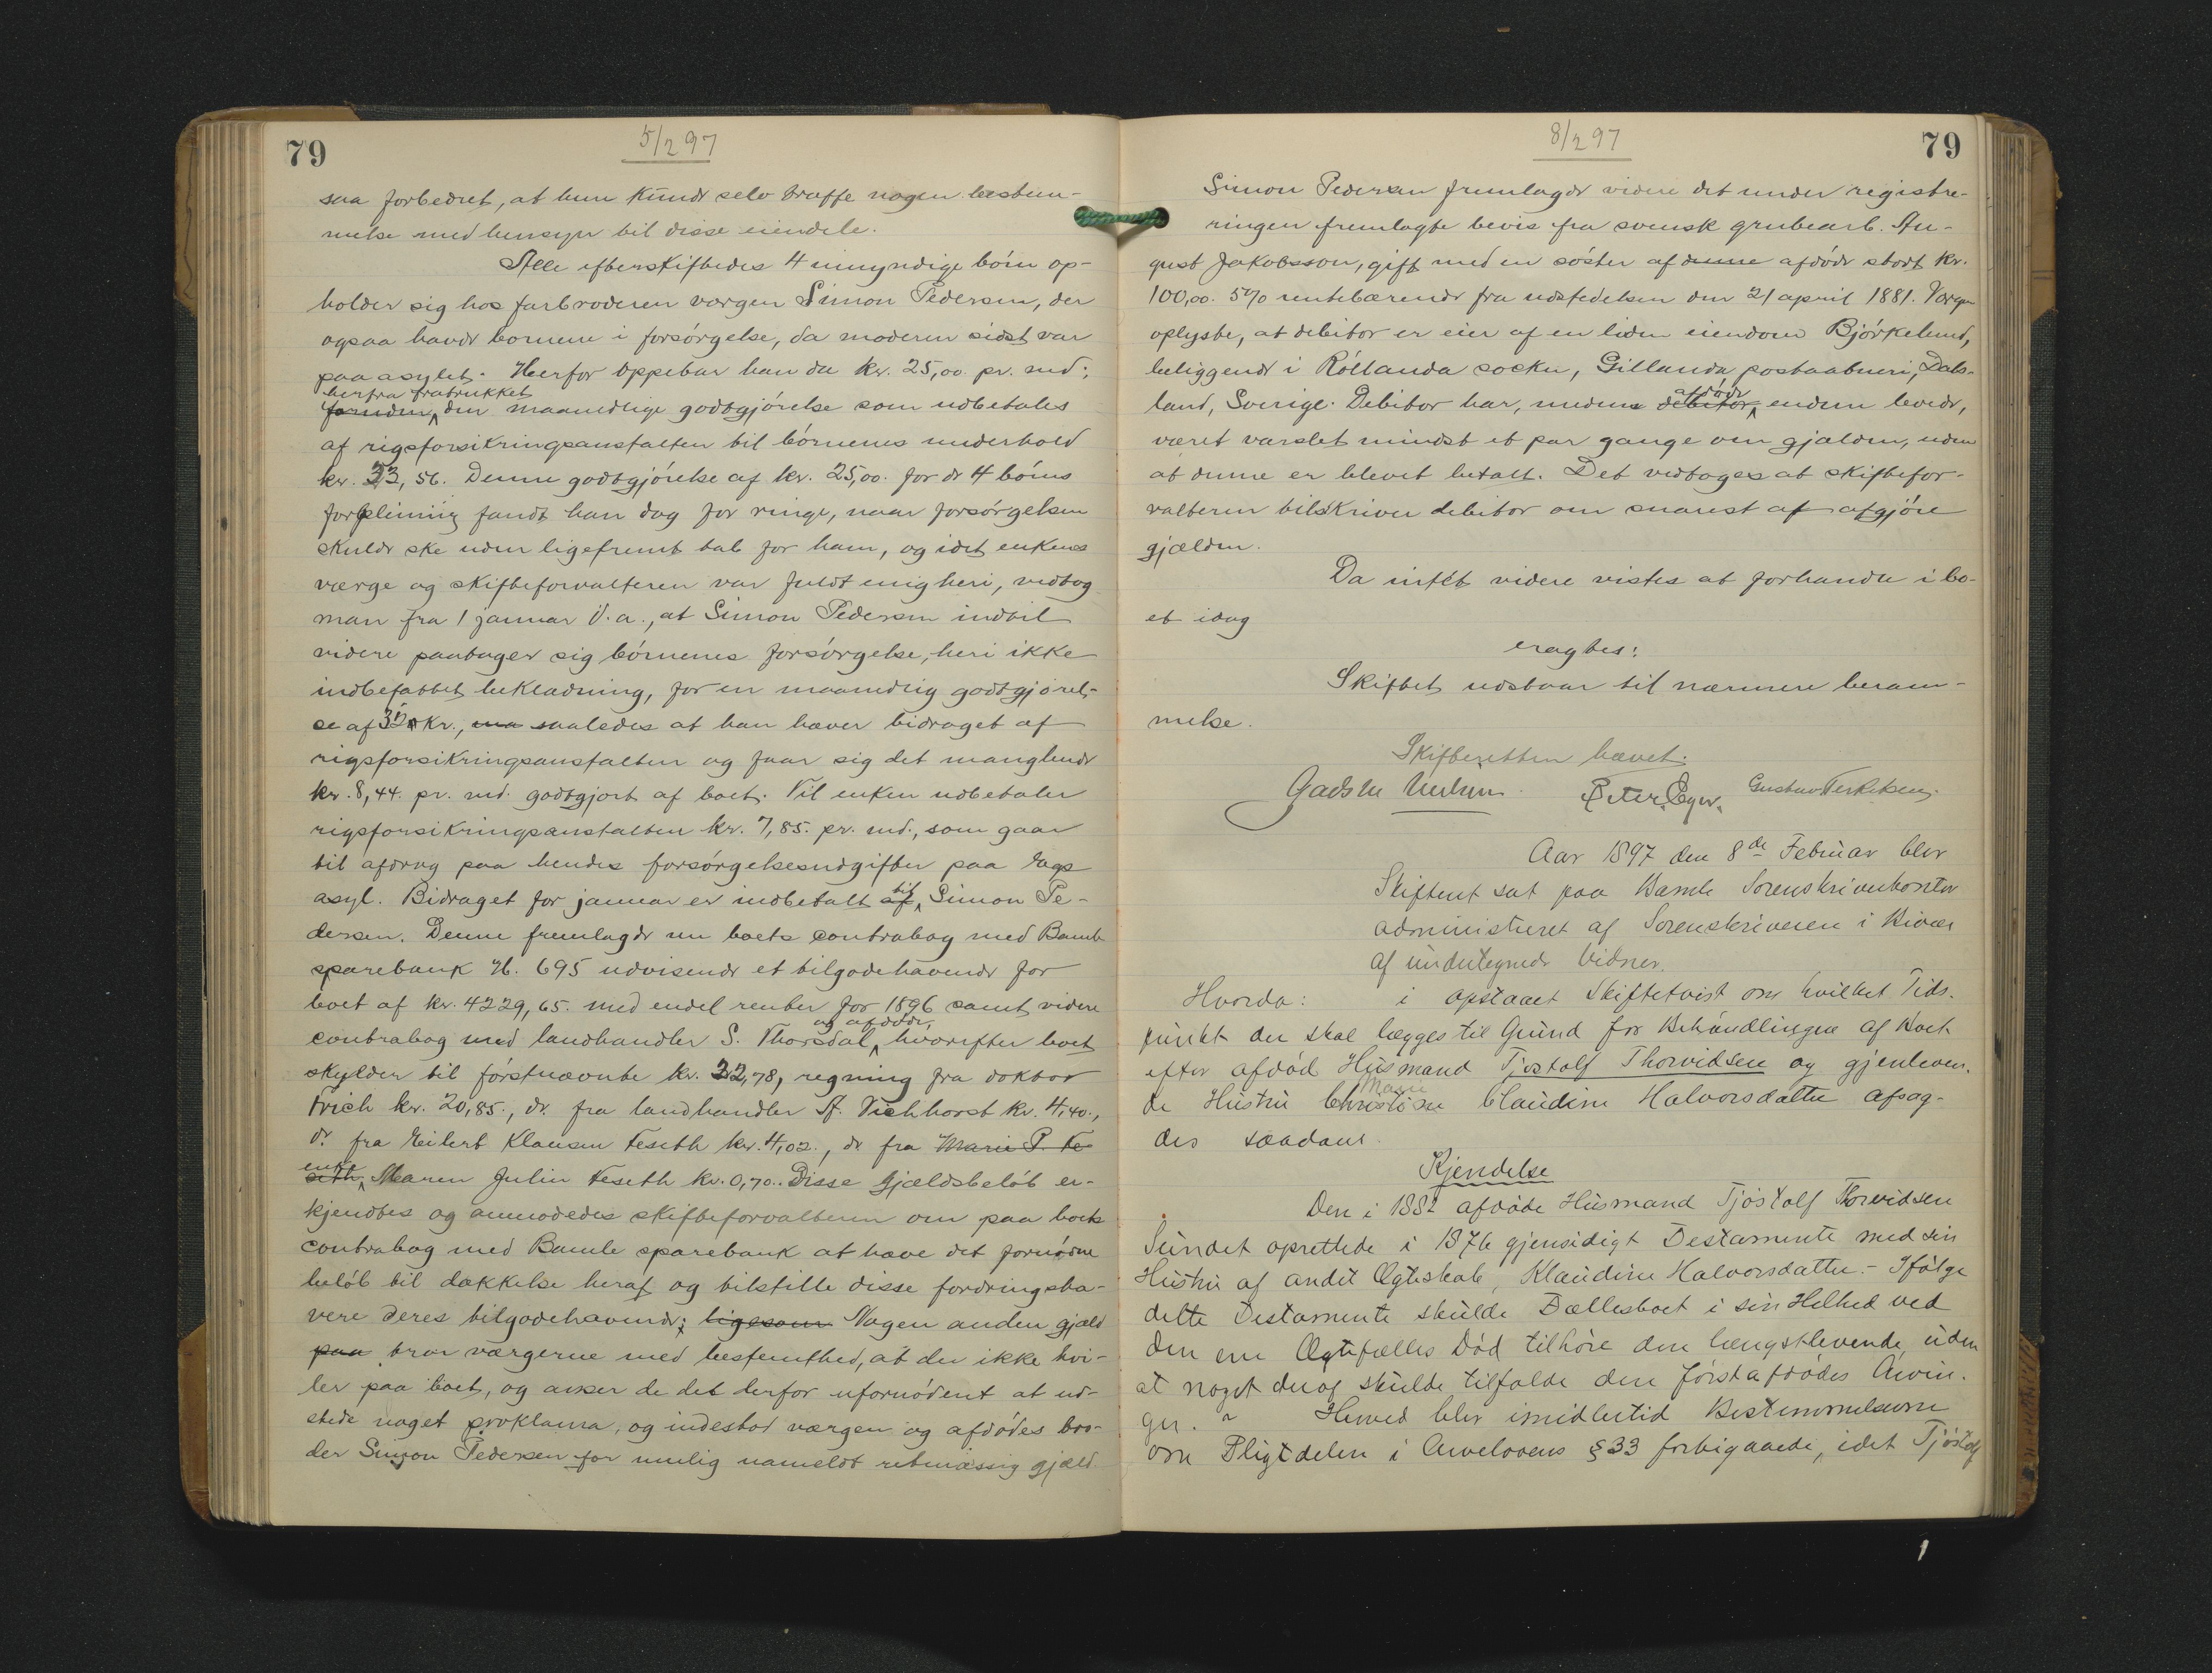 79
5/2 97
saa forbedret, at hun kunde selv træffe nogen bestem-
melse med hensyn til disse eiendele.
Alle efterskiftedes 4 umyndige børn op-
holder sig hos farbroderen værgen Simon Pedersen, der
ogsaa havde børnene i forsørgelse, da moderen sidst var
paa asylet. Herfor oppebar han da kr. 25,00 pr. md.,
herfra fratrukket
foruden den maanedlige godtgjørelse som udbetales
af rigsforsikringsanstalten til børnenes underhold
kr. 23,56. Denne godtgjørelse af kr. 25,00. for de 4 børns
forpleining fandt han dog for ringe, naar forsørgelsen
skulde ske uden ligefremt tab for ham, og idet enkens
værge og skifteforvalteren var fuldt enig heri, vedtog
man fra 1 januar d. a., at Simon Pedersen indtil
videre paatager sig børnenes forsørgelse, heri ikke
indbefattet beklædning, for en maanedlig godtgjørel-
se af 32 kr., saaledes at han hæver bidraget af
rigsforsikringsanstalten og faar sig det manglende
kr. 8,44. pr. md. godtgjort af boet. Til enken udbetaler
rigsforsikringsanstalten kr. 7,85. pr. md., som gaar
til afdrag paa hendes forsørgelsesudgifter paa Egs
asyl. Bidraget for januar er indbetalt af til Simon Pe-
dersen. Denne fremlagde nu boets contrabog med Bamble
sparebank N. 695 udvisende et tilgodehavende for
boet af kr. 4229,65. med endel renter for 1896 samt videre
og afdøde,
contrabog med landhandler S. Thorsdal, hvorefter boet
skylder til førstnævnte kr. 22,78, regning fra doktor
Frich kr. 20,85., do. fra landhandler A. Vichhorst kr. 4,40.,
do. fra Eilert Klausen Feseth kr. 4,02., do. fra Marie P. Fe-
enke
seth, Maren Julin Feseth kr. 0,70. Disse gjældsbeløb er-
kjendtes og anmodedes skifteforvalteren om paa boets
contrabog med Bamle sparebank at hæve det fornødne
beløb til dækkelse heraf og tilstille disse fordringsha-
vere deres tilgodehavende; ligesom Nogen anden gjæld
paa tror værgerne med bestemthed, at der ikke hvi-
ler paa boet, og anser de det derfor ufornødent at ud-
stede noget proklama, og indestod værgen og afdødes bro-
der Simon Pedersen for mulig uameldt retmæssig gjæld.
8/2 97
79
Simon Pedersen fremlagde videre det under registre-
ringen fremlagte bevis fra svensk grubearb. Au-
gust Jakobsson, gift med en søster af denne afdøde stort kr.
100,00. 5% rentebærende fra udstedelsen den 21 april 1881. Værgen
oplyste, at debitor er eier af en liden eiendom Bjørkelund,
beliggende i Røllanda socken, Gillanda postaabneri, Dals-
afdøde
land, Sverige. Debitor har, medens debitor, endnu levede,
været varslet mindst et par gange om gjælden, uden
at denne er blevet betalt. Det vedtoges at skiftefor-
valteren tilskriver debitor om snarest at afgjøre
gjælden.
Da intet videre vistes at forhandle i bo-
et idag
eragtes:
Skiftet udstaar til nærmere beram-
melse.
Skifteretten hævet.
Peter Eger. Gustav Terkelsen.
Aar 1897 den 8de Februar blev
Skifteret sat paa Bamle Sorenskriverkontor
administreret af Sorenskriveren i Bivær
af undertegnede Vidner.
Hvorda: i opstaaet Skiftetvist om hvilket Tids-
punkt der skal lægges til Grund for Behandlingen af Boet
efter afdød Husmand Tjostolf Thorvidsen og gjenleven-
Marie
de Hustru Christine Claudine Halvorsdatter afsag-
des saadan
Kjendelse
Den i 1882 afdøde Husmand Tjøstolf Thorvidsen
Sundet oprettede i 1876 gjensidigt Testamente med sin
Hustru af andet Ægteskab, Klaudine Halvorsdatter. - Ifølge
dette Testamente skulde Fællesboet i sin Helhed ved
den ene Ægtefælles Død tilhøre den længstlevende, uden
at noget deraf skulde tilfalde den førstafdødes Arvin-
ger. Herved blev imidlertid Bestemmelserne
om Pligtdelen i Arvelovens § 33 forbigaaede, idet Tjøstolf